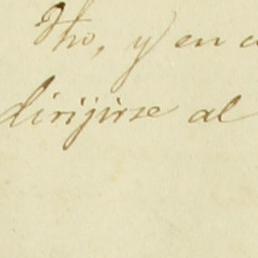 Dho, y en c
dirijirse al